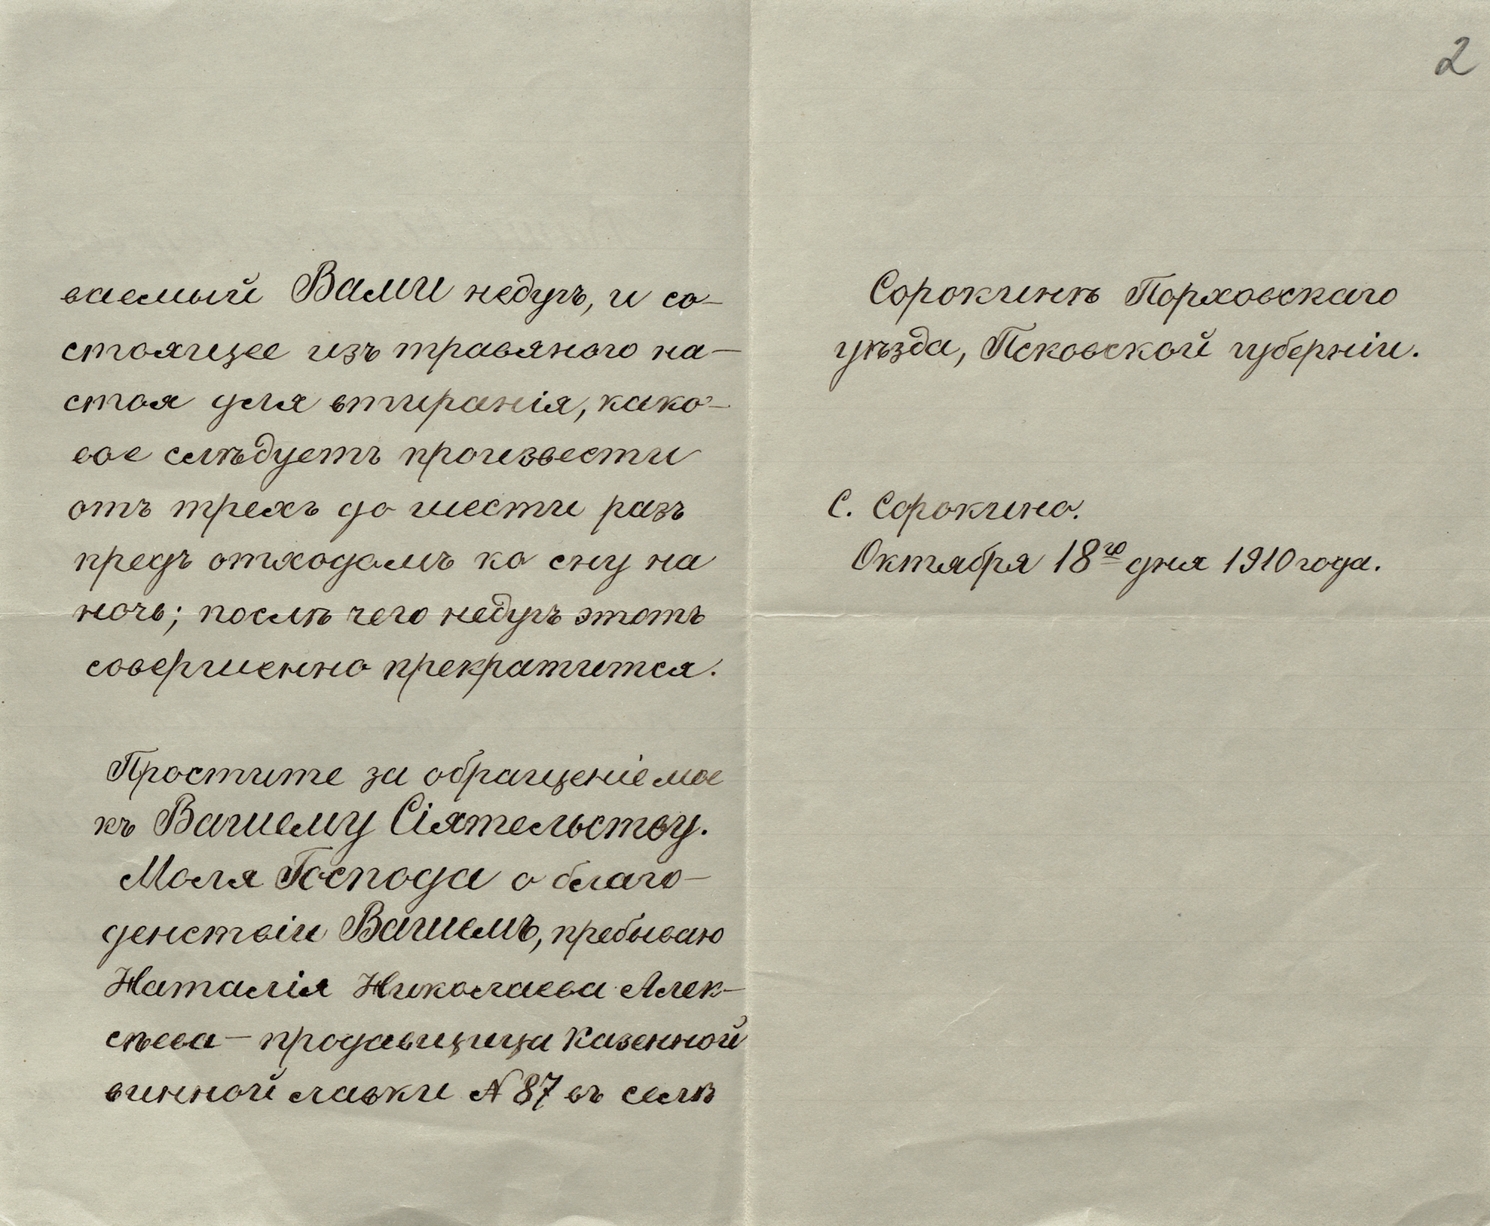 ваемый Вами недугъ, и со-
стоящее изъ травяного на-
стоя для втиранія, како-
вое слѣдуетъ произвести
отъ трехъ до шести разъ
предъ отходомъ ко сну на
ночь; послѣ чего недугъ этотъ
совершенно прекратится.
Простите за обращеніе мое
къ Вашему Сіятельству.
Моля Господа о благо-
денствіи Вашемъ, пребываю
Наталія Николаева Алек-
сѣева - продавщица Казенной
винной лавки № 87 въ селѣ
2
Сорокинѣ Порховскаго
уѣзда, Псковской губерніи.
С. Сорокино.
Октября 18го дня 1910 года.